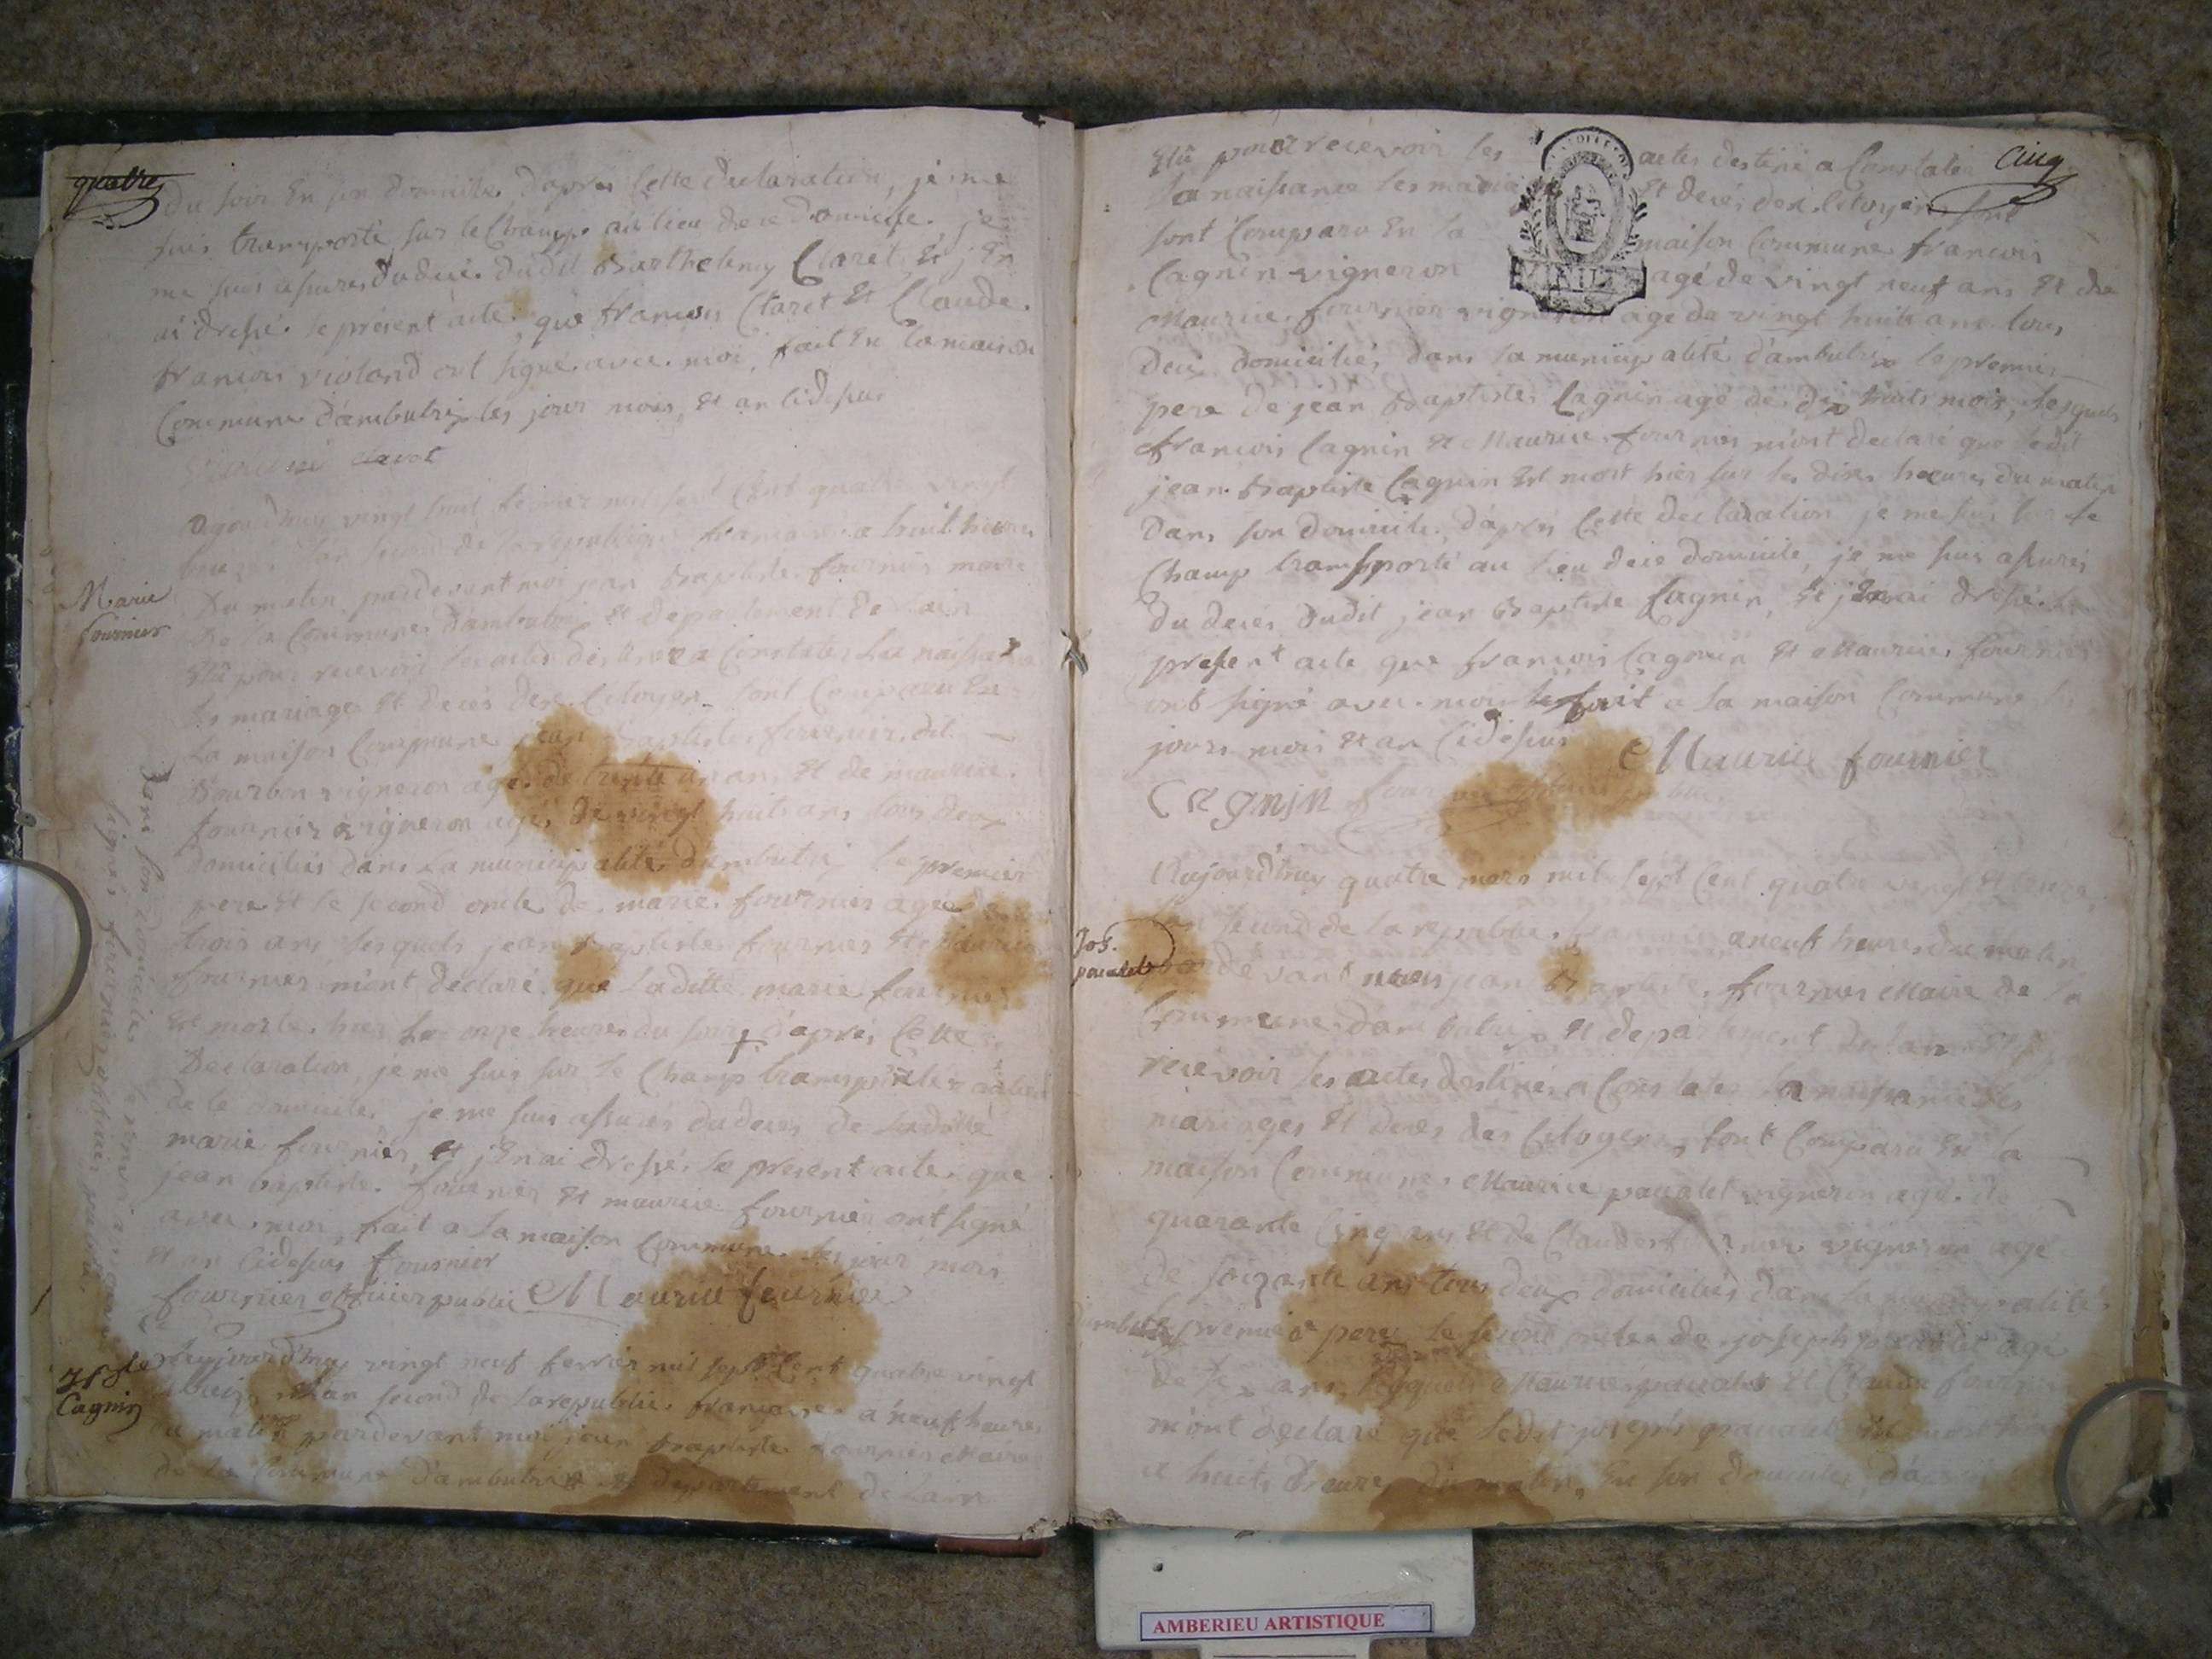 quatre
du soir En son domicille d'apres Cette declaration, je me
suis transporté sur le Champ au lieu de ce domicille. je
me suis assures du deces dudit Barthelemy Claret Et j'En
ai dressé le présent acte que francois Claret Et Claude
francois violand ont signé avec moi, fait En la maison
Commune d'ambutrix les jour mois Et an cidessus
claret
Marie
fournier
aujourdhuy vingt huit fevrier mil sept Cent quatre vingt
l'an second de la republique francaise a huit heures
du matin, pardevant moi jean Baptiste fournier maire
de la Commune d'ambutrix Et departement de l'ain
Elû pour recevoir les actes destinez a Constater la naissance
les mariages Et deces des Citoyens sont Comparu En
la maison Commune jean Baptiste fournier dit
Bourbon vigneron agé de trente un ans Et de maurice
fournier vigneron agé de vingt huit ans tous deux
domiciliés dans la municipalité d'ambutrix le premier
pere Et le second oncle de marie fournier agée de
trois ans lesquels jean Baptiste fournier Et maurice
fournier m'ont declaré que laditte marie fournier
Est morte hier sur onze heures du soir + d'apres Cette
Declaration, je me suis sur le Champ transporter au lieu
de ce domicile, je me suis assurés du deces de laditte
marie fournier, Et j'En ai dressé le present acte que
jean baptiste fournier Et maurice fournier ont signé
avec moi, fait a la maison Commune les jour mois
Et an cidessus fournier
fournier officier public Maurice fournier
+ dans son domicile
fournier officier public
j Bte
Cagnin
aujourdhuy vingt neuf fevrier mil sept Cent quatre vingt
l'an second de la republique francaise a neuf heures
du matin pardevant moi jean Baptiste fournier Maire
de la Commune d'ambutrix Et departement de l'ain
Cinq
Elû pour recevoir les actes destiné a Constater
la naissance les mariages Et deces des Citoyens sont
sont Comparu En la maison Commune francois
Cagnin vigneron agé de vingt neuf ans Et de
Maurice fournier vigneron agé de vingt huit ans tous
deux domiciliés dans la municipalité d'ambutrix le premier
pere de jean Baptiste Cagnin agé de dix huit mois, lesquels
francois Cagnin Et Maurice fournier m'ont declaré que ledit
jean Baptiste Cagnin Est mort hier sur les dix heures du matin
dans son domicile, d'apres Cette declaration je me suis sur le
Champ transporté au lieu de ce domicile, je me suis assurés
du deces dudit jean Baptiste Cagnin, Et j'En ai dressé le
present acte que francois Cagnin Et Maurice fournier
ont signé avec moi fait a la maison Commune les
jours mois Et an cidessus Maurice fournier
Cagnin fournier officier public
Jos.
paualet
Aujourdhuy quatre mars mil sept Cent quatre vingt Et treize
l'an second de la republique francaise a neuf heures du matin
pardevant nous jean Baptiste fournier Maire de la
Commune d'ambutrix Et departement de l'ain
recevoir les actes destinés a Constater la naissance les
mariages Et deces des Citoyens, sont Comparu En la
maison Commune Maurice paualet vigneron agé de
quarante Cinq ans Et de Claude fournier vigneron agé
de soixante ans tous deux domiciliés dans la municipalité
d'ambutrix premier pere le second oncle de joseph paualet agé
de ans, lesquels Maurice paualet Et Claude fournier
m'ont declaré que ledit joseph paualet Est mort hier
a huit heures du matin, En son domicile, d'apres
AMBERIEU ARTISTIQUE